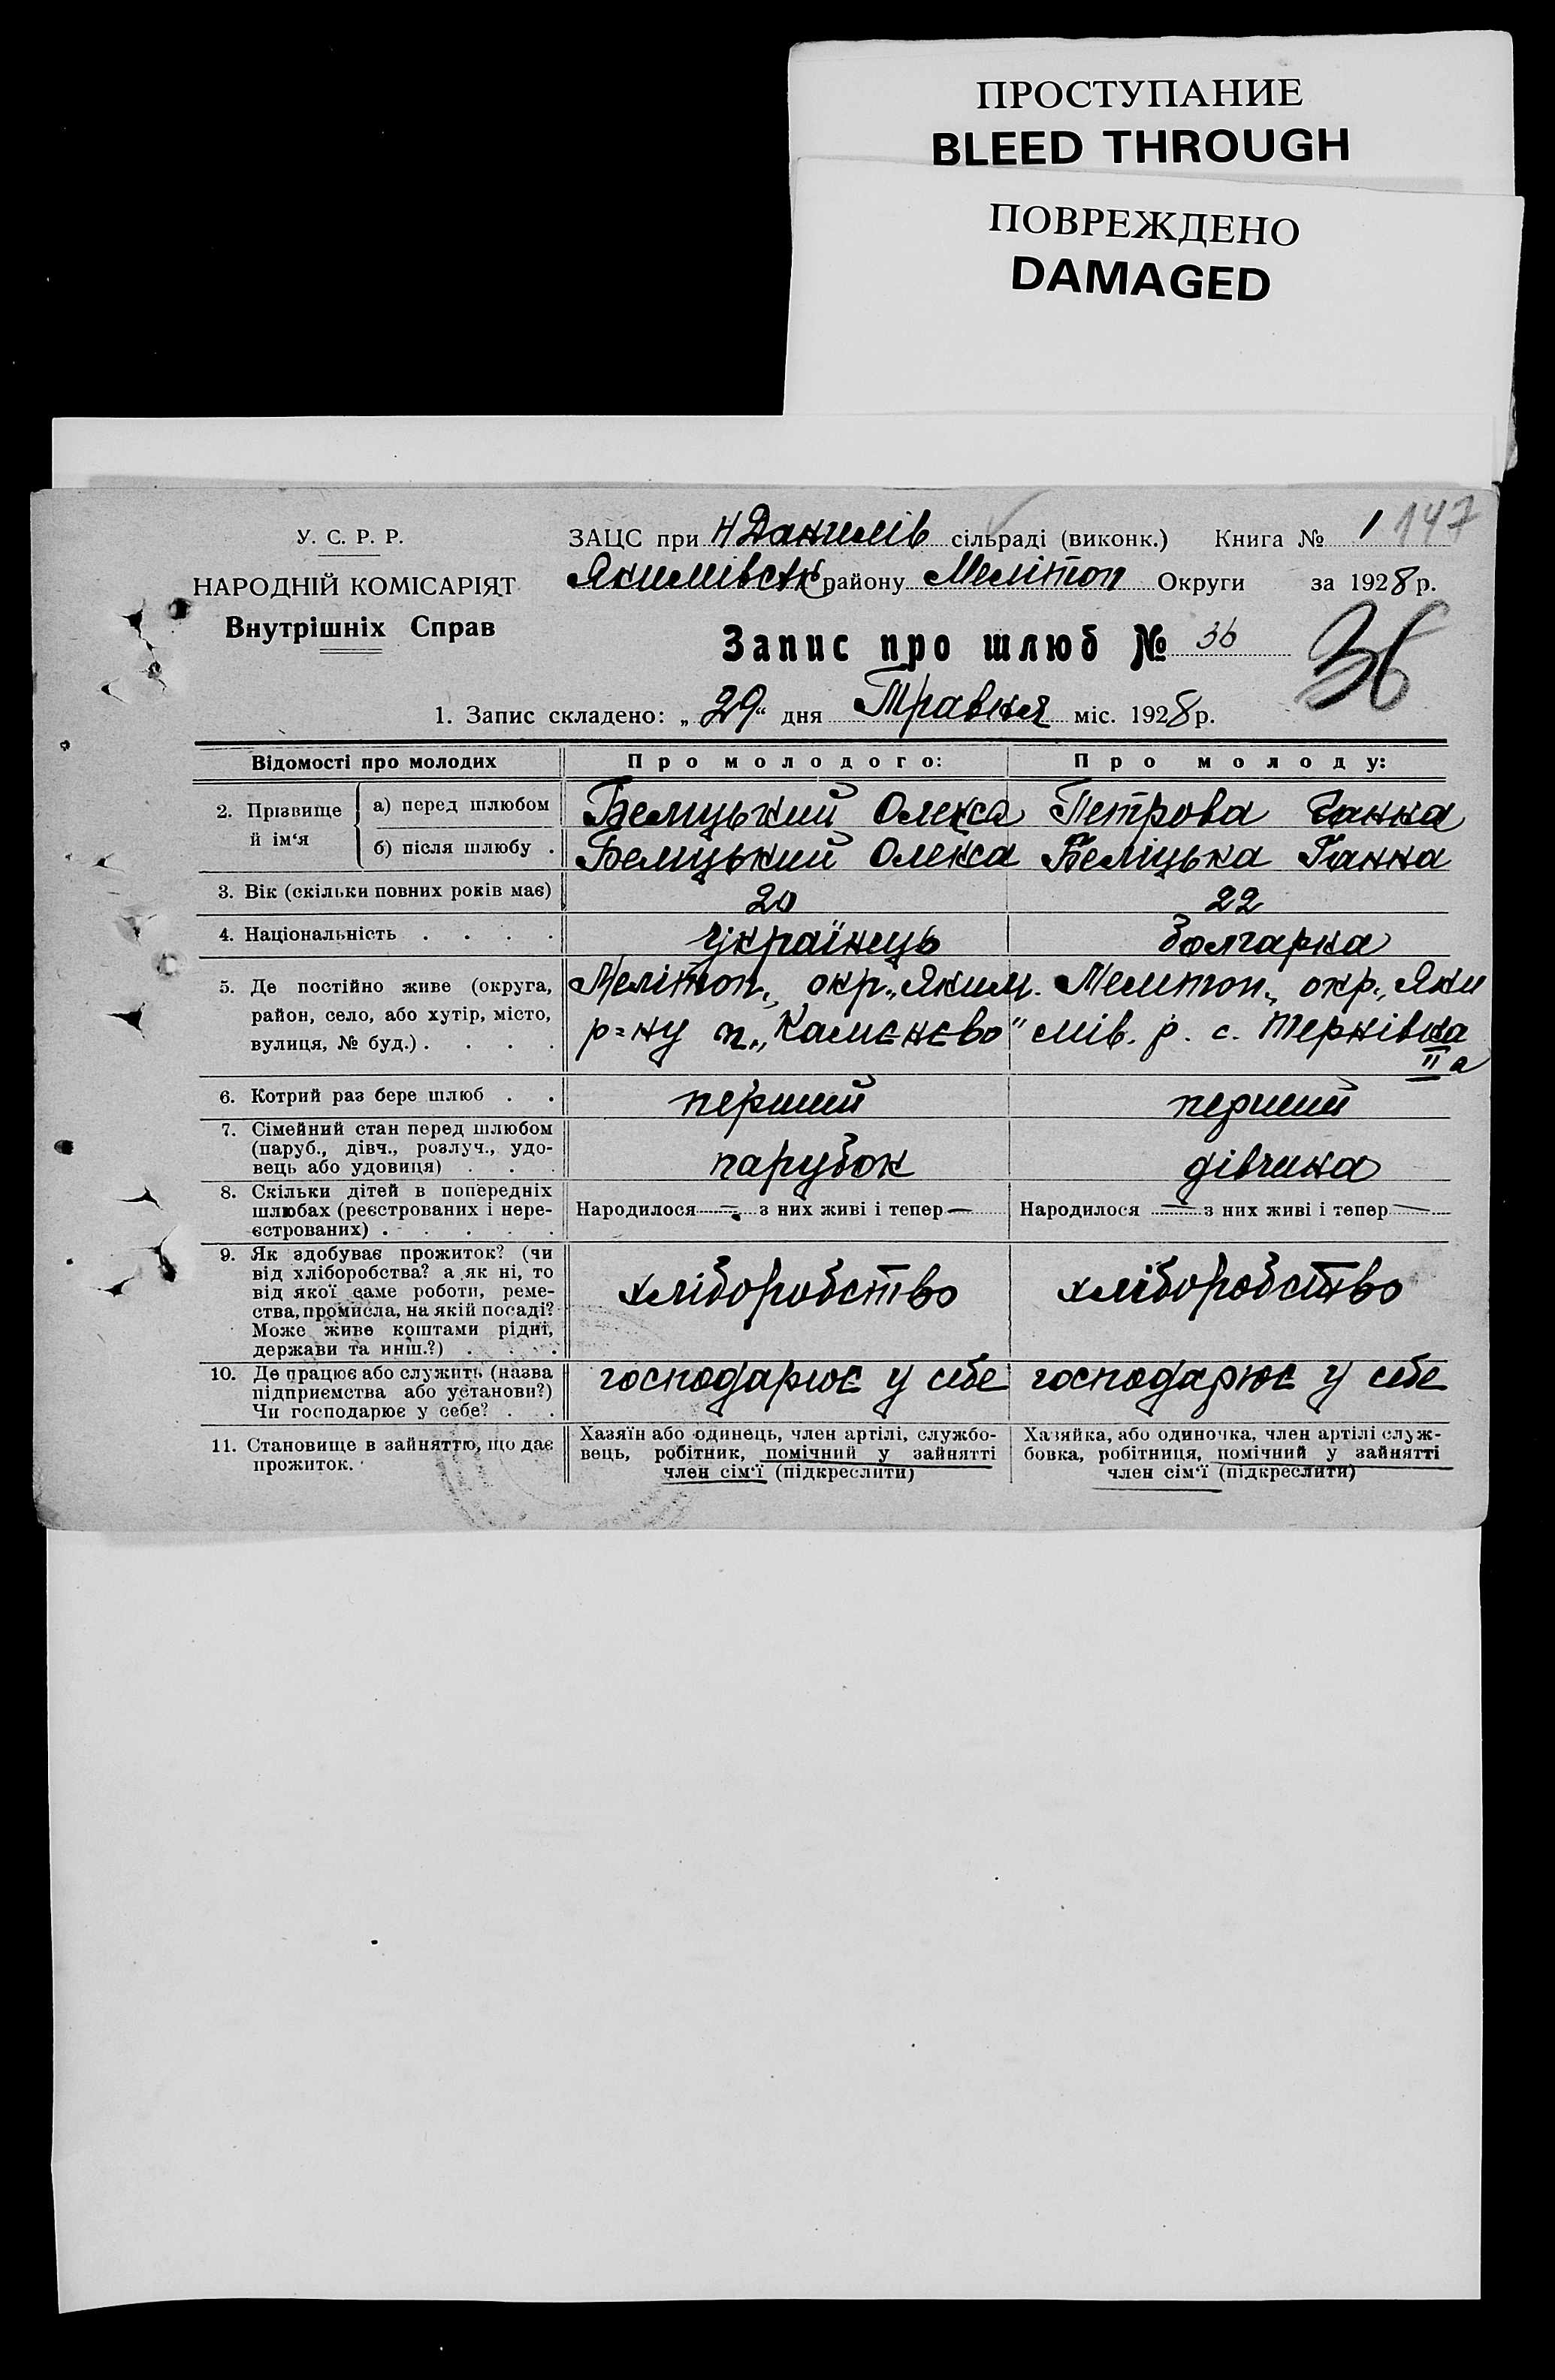 ПРОСТУПАНИЕ
BLEED THROUGH
ПОВРЕЖДЕНО
DAMAGED
У. С. Р. Р.
НАРОДНІЙ КОМІСАРІЯТ
Внутрішніх Справ
ЗАЦС при Н Данилів сільраді (виконк.) Книга № 1 147
Якимівськ району Меліտоп Округи за 1928 р.
Запис про шлюб № 36 36
1. Запис складено: „29“ дня Травня міс. 1928 р.
Відомості про молодих Про молодого: Про молоду:
2. Прізвище й ім‘я
а) перед шлюбом Беліцький Олекса Петрова Ганна
б) після шлюбу . Беліцький Олекса Беліцька Ганна
3. Вік (скільки повних років має) 20 22
4. Національність . . . . Українець Болгарка
5. Де постійно живе (округа, район, село, або хутір, місто, вулиця, № буд.) . . . .
Меліտоп. окр. Яким.
р=ну п. „Каменєво"
Меліտоп. окр. Яки
мів. р. с. Тернівка
II а
6. Котрий раз бере шлюб . . перший перший
7. Сімейний стан перед шлюбом
(паруб., дівч., розлуч., удо-
вець або удовиця) . . . парубок дівчина
8. Скільки дітей в попередніх
шлюбах (реєстрованих і нере-
єстрованих) . . . . .
Народилося — з них живі і тепер — Народилося — з них живі і тепер —
9. Як здобуває прожиток? (чи
від хліборобства? а як ні, то
від якої саме роботи, реме-
ства, промисла, на якій посаді?
Може живе коштами рідні,
держави та инш.?) . . . .
хліборобство хліборобство
10. Де працює або служить (назва
підприємства або установи?)
Чи господарює у себе? . .
господарює у себе господарює у себе
11. Становище в зайняттю, що дає
прожиток.
Хазяїн або одинець, член артілі, службо-
вець, робітник, помічний у зайнятті
член сім‘ї (підкреслити)
Хазяйка, або одиночка, член артілі служ-
бовка, робітниця, помічний у зайнятті
член сім‘ї (підкреслити)